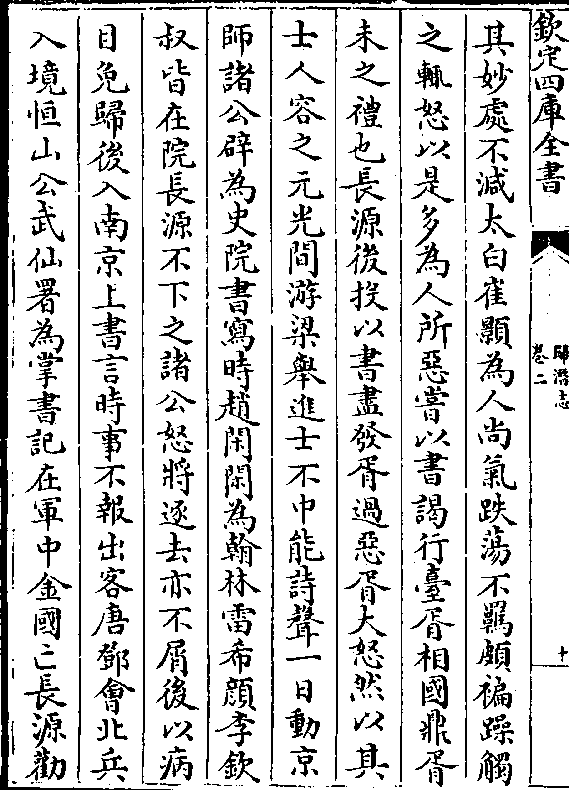 欽定四庫全書
歸潛志
卷二
十
其妙處不減太白崔顥為人尚氣跌蕩不羈頗褊躁觸
之輒怒以是多為人所惡嘗以書謁行臺胥相國鼎胥
未之禮也長源後投以書盡發胥過惡胥大怒然以其
士人容之元光間游梁舉進士不中能詩聲一日動京
師諸公辟為史院書寫時趙閑閑為翰林雷希顔李欽
叔皆在院長源不下之諸公怒將逐去亦不屑後以病
目免歸後入南京上書言時事不報出客唐鄧會北兵
入境恒山公武仙署為掌書記在軍中金國亡長源勸